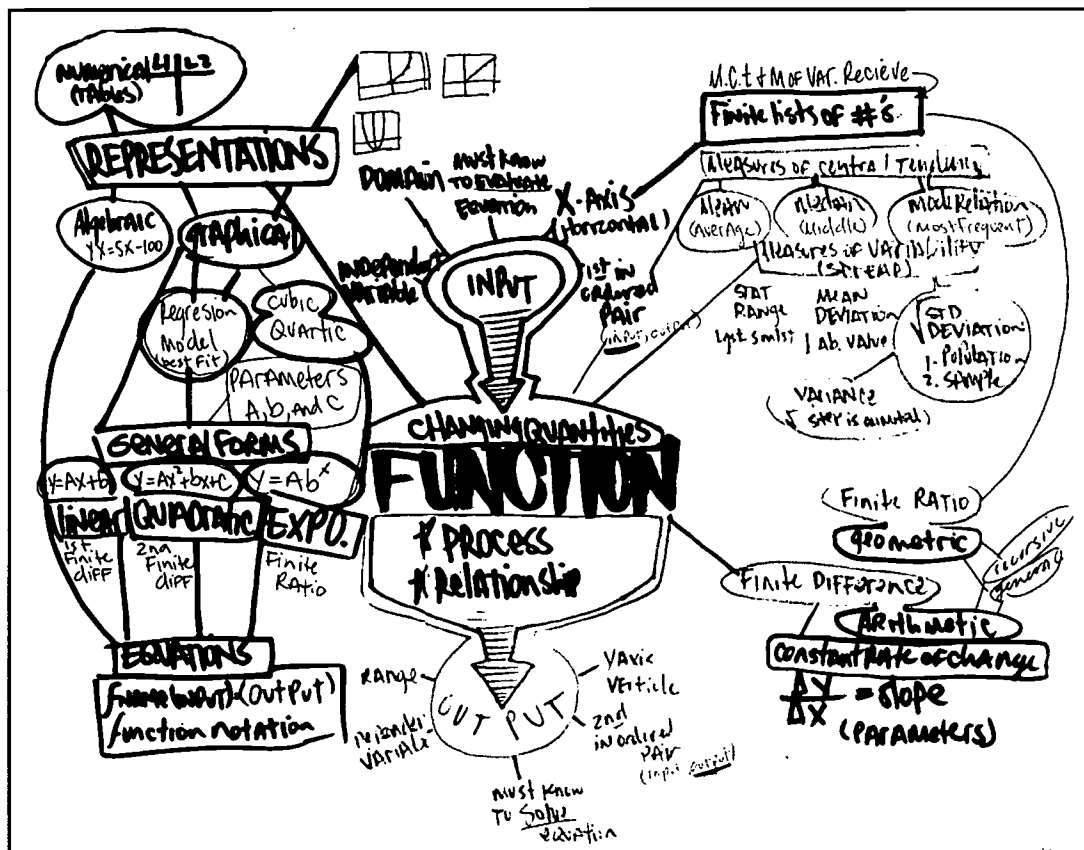 Numerical L1 L2
(TABLES)
REPRESENTATIONS
Algebraic
YX=5X-100
graphical
Regresion
Model
(best Fit)
CUBIC
QUARTIC
PARAMETERS
A, b, and C
General FORMS
y=Ax+b
y=Ax²+bx+c
y=Ab^x
linear
QUADRATIC
EXPO.
1st
Finite
diff
2nd
Finite
diff
Finite
RAtio
EQUATIONS
fname(INPUT)=(OUTPUT)
function notation
DOMAIN
must know
TO EVALUATE
EQUATION
X-AXIS
(Horizontal)
INDEPENDENT
VARIABLE
INPUT
1st in
ordered
PAIR
(input, output)
CHANGING QUANTITIES
FUNCTION
* PROCESS
* Relationship
RANGE
VARIABLE
OUTPUT
Y Axis
VERTICLE
2nd
in ordered
PAIR
(input, output)
must know
TO Solve
equation
M.C.t + M of VAR. Recieve
Finite lists of #'s
Measures of central Tendency
MEAN
(Average)
Median
(Middle)
Mode Relation
(Most Frequent)
Measures of VARIABILITY
(SPREAD)
STAT
RANGE
MEAN
DEVIATION
Ab. VALUE
√ STD
DEVIATION
1. Population
2. SAMPLE
VARIANCE
Finite RATIO
geometric
recursive
general
Finite Difference
ARithmatic
constant Rate of change
ΔY/ΔX = slope
(PARAMETERS)